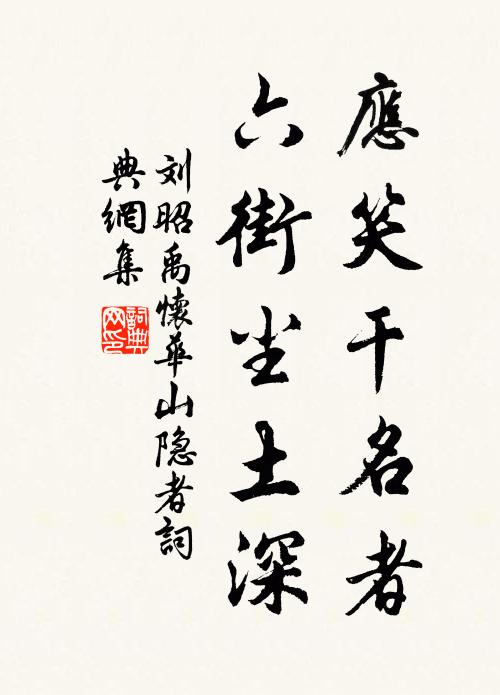 應笑干名者
六街尘土深
刘昭禹懷華山隐者詞
典網集
詞典
网印